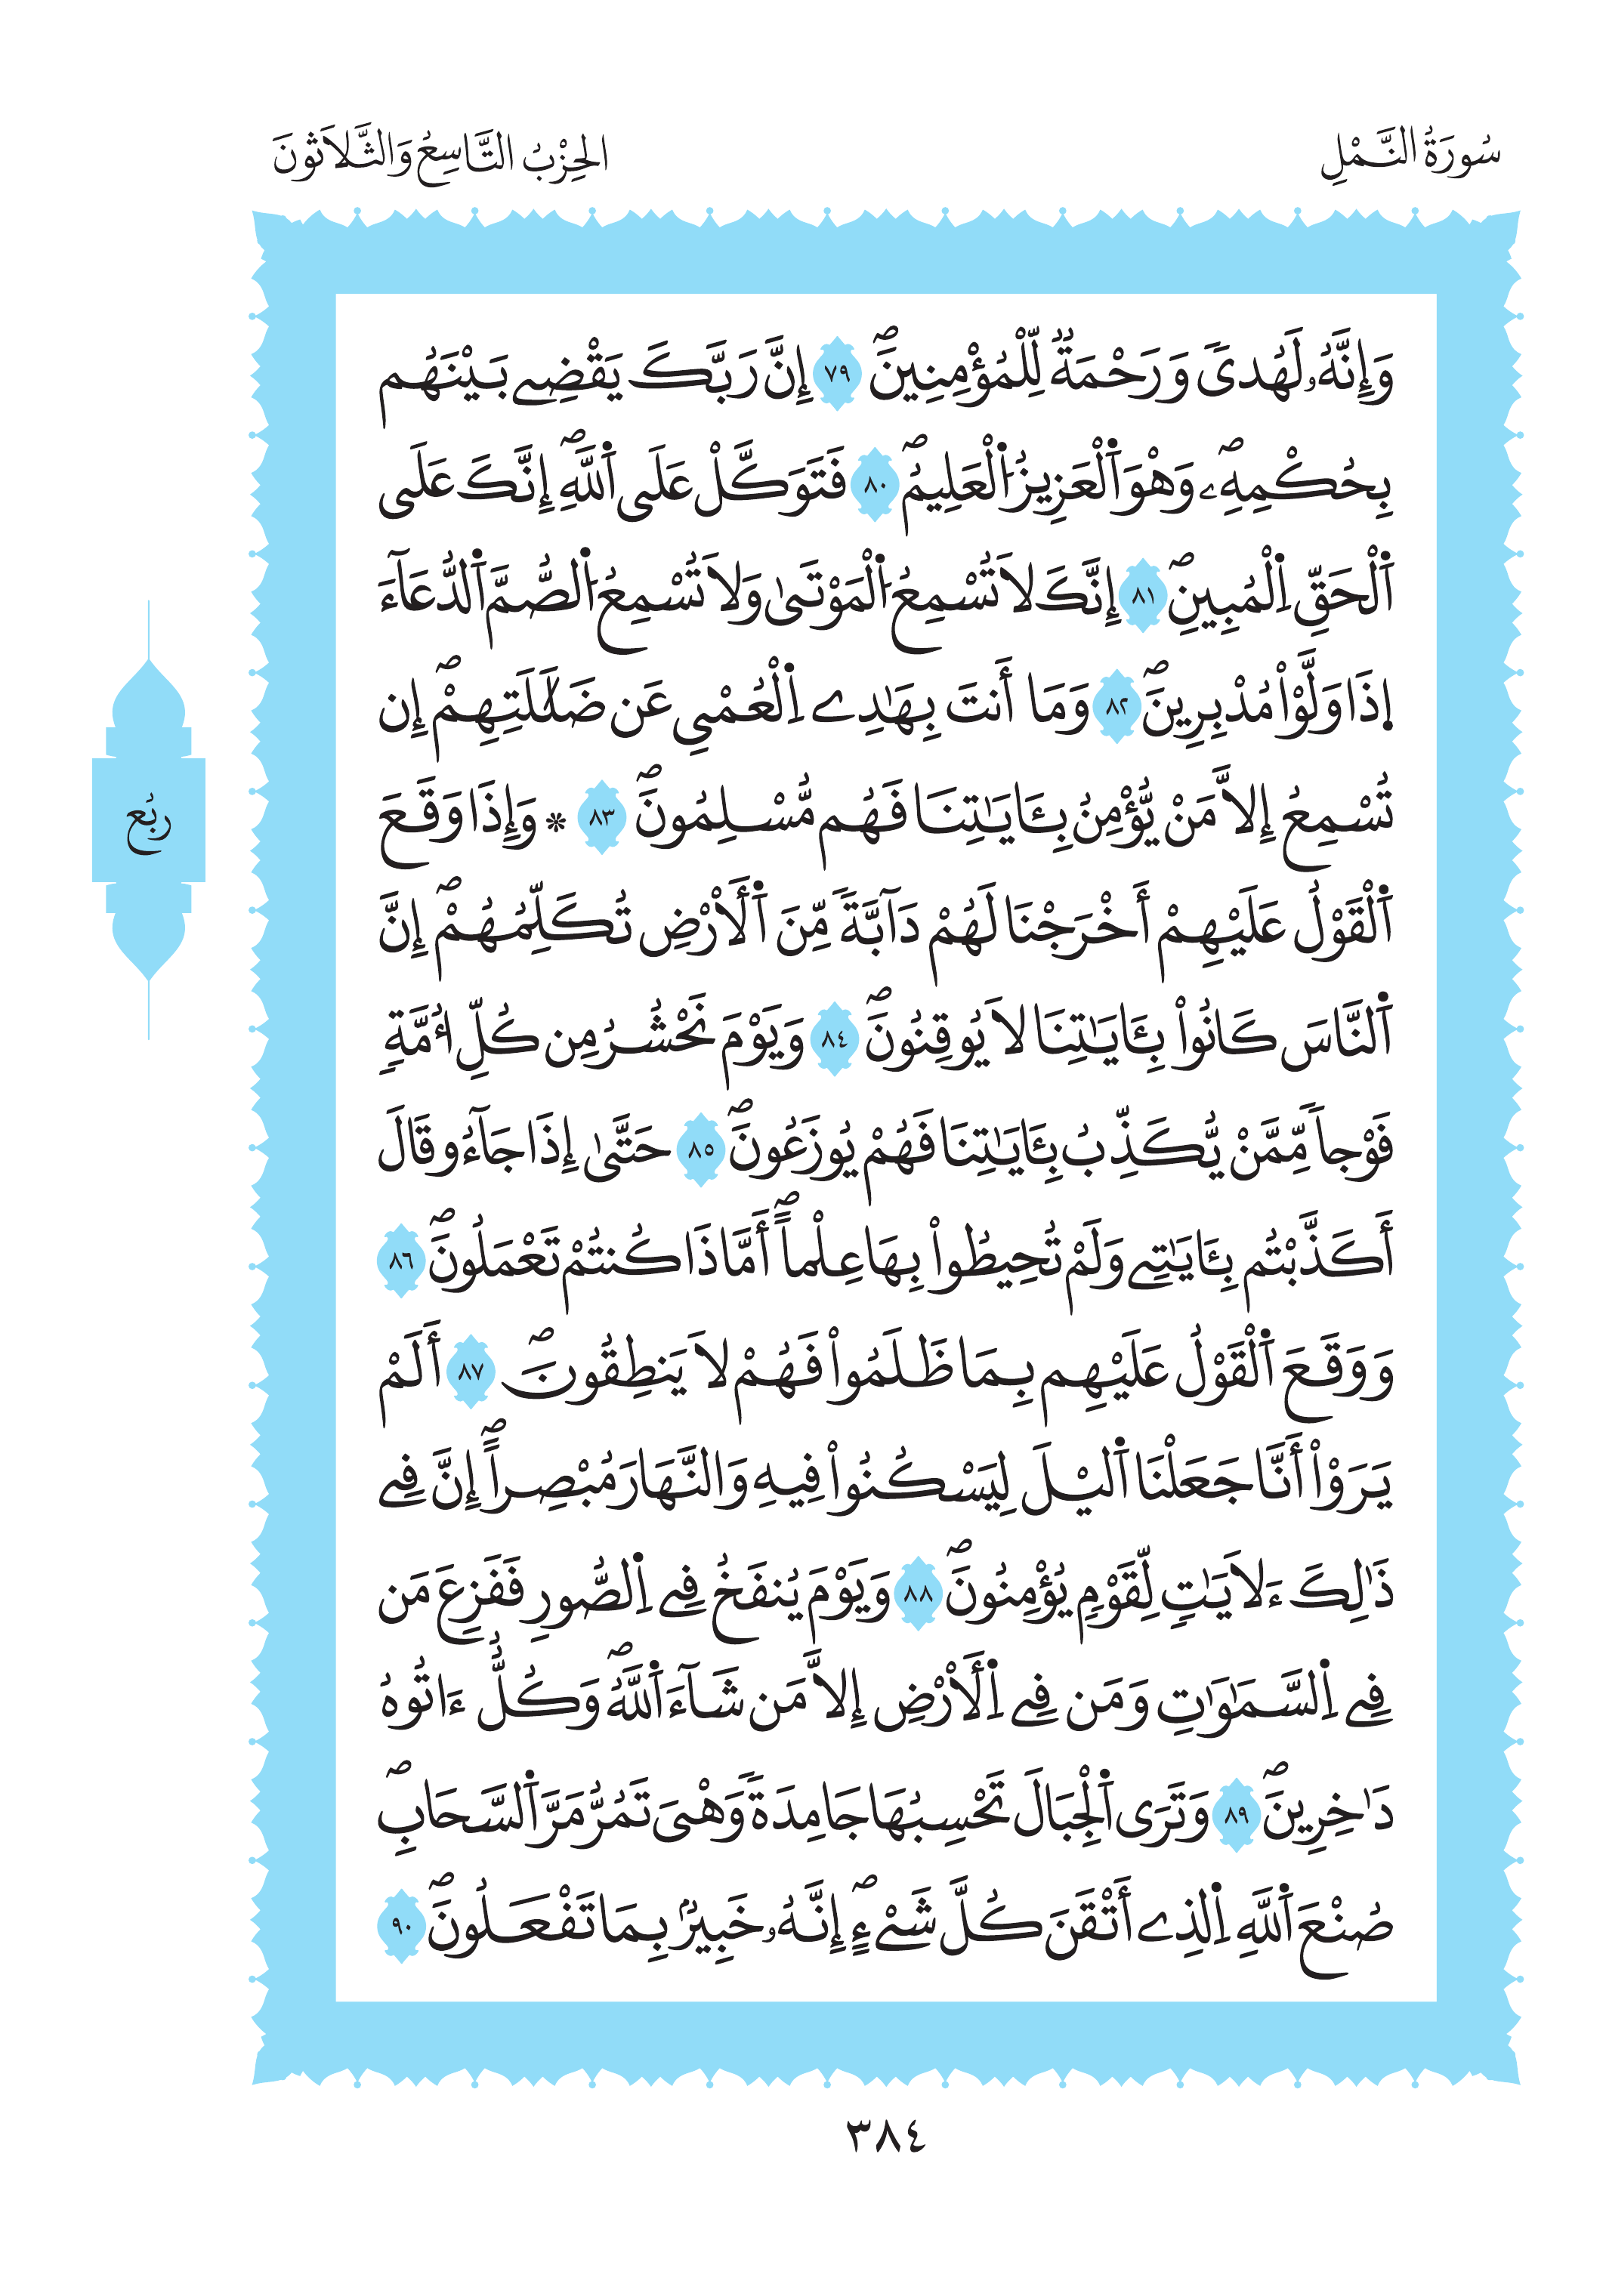 سُورَةُ النَّمْلِ
الحِزْبُ التَّاسِعُ وَالثَّلَاثُونَ
وَإِنَّهُۥ لَهُدىٗ وَرَحْمَةٞ لِّلْمُؤْمِنِينَۖ ٧٩ إِنَّ رَبَّكَ يَقْضِے بَيْنَهُم
بِحُكْمِهِۦۖ وَهْوَ اَ۬لْعَزِيزُ اُ۬لْعَلِيمُۖ ٨٠ فَتَوَكَّلْ عَلَى اَ۬للَّهِۖ إِنَّكَ عَلَى
اَ۬لْحَقِّ اِ۬لْمُبِينِۖ ٨١ إِنَّكَ لَا تُسْمِعُ اُ۬لْمَوْتَىٰ وَلَا تُسْمِعُ اُ۬لصُّمَّ اَ۬لدُّعَآءَ
اِ۪ذَا وَلَّوْاْ مُدْبِرِينَۖ ٨٢ وَمَا أَنتَ بِهَٰدِے اِ۬لْعُمْيِ عَن ضَلَٰلَتِهِمْۖ إِن
تُسْمِعُ إِلَّا مَنْ يُّؤْمِنُ بِـَٔايَٰتِنَا فَهُم مُّسْلِمُونَۖ ٨٣ * وَإِذَا وَقَعَ
اَ۬لْقَوْلُ عَلَيْهِمْ أَخْرَجْنَا لَهُمْ دَآبَّةٗ مِّنَ اَ۬لَأرْضِ تُكَلِّمُهُمْۖ إِنَّ
اَ۬لنَّاسَ كَانُواْ بِـَٔايَٰتِنَا لَا يُوقِنُونَۖ ٨٤ وَيَوْمَ نَحْشُرُ مِن كُلِّ أُمَّةٖ
فَوْجاٗ مِّمَّنْ يُّكَذِّبُ بِـَٔايَٰتِنَا فَهُمْ يُوزَعُونَۖ ٨٥ حَتَّىٰ إِذَا جَآءُو قَالَ
أَكَذَّبْتُم بِـَٔايَٰتِے وَلَمْ تُحِيطُواْ بِهَا عِلْماًۖ أَمَّاذَا كُنتُمْ تَعْمَلُونَۖ ٨٦
وَوَقَعَ اَ۬لْقَوْلُ عَلَيْهِم بِمَا ظَلَمُواْ فَهُمْ لَا يَنطِقُونَۖ ٨٧ أَلَمْ
يَرَوْاْ أَنَّا جَعَلْنَا اَ۬ليْلَ لِيَسْكُنُواْ فِيهِ وَالنَّهَارَ مُبْصِراًۖ إِنَّ فِے
ذَٰلِكَ ءَلَايَٰتٖ لِّقَوْمٖ يُؤْمِنُونَۖ ٨٨ وَيَوْمَ يُنفَخُ فِے اِ۬لصُّورِ فَفَزِعَ مَن
فِے اِ۬لسَّمَٰوَٰتِ وَمَن فِے اِ۬لَأرْضِ إِلَّا مَن شَآءَ اَ۬للَّهُۖ وَكُلٌّ ءَاتُوهُ
دَٰخِرِينَۖ ٨٩ وَتَرَى اَ۬لْجِبَالَ تَحْسِبُهَا جَامِدَةٗ وَهْىَ تَمُرُّ مَرَّ اَ۬لسَّحَابِۖ
صُنْعَ اَ۬للَّهِ اِ۬لذِے أَتْقَنَ كُلَّ شَےْءٍۖ إِنَّهُۥ خَبِيرُۢ بِمَا تَفْعَلُونَۖ ٩٠
ربُع
٣٨٤